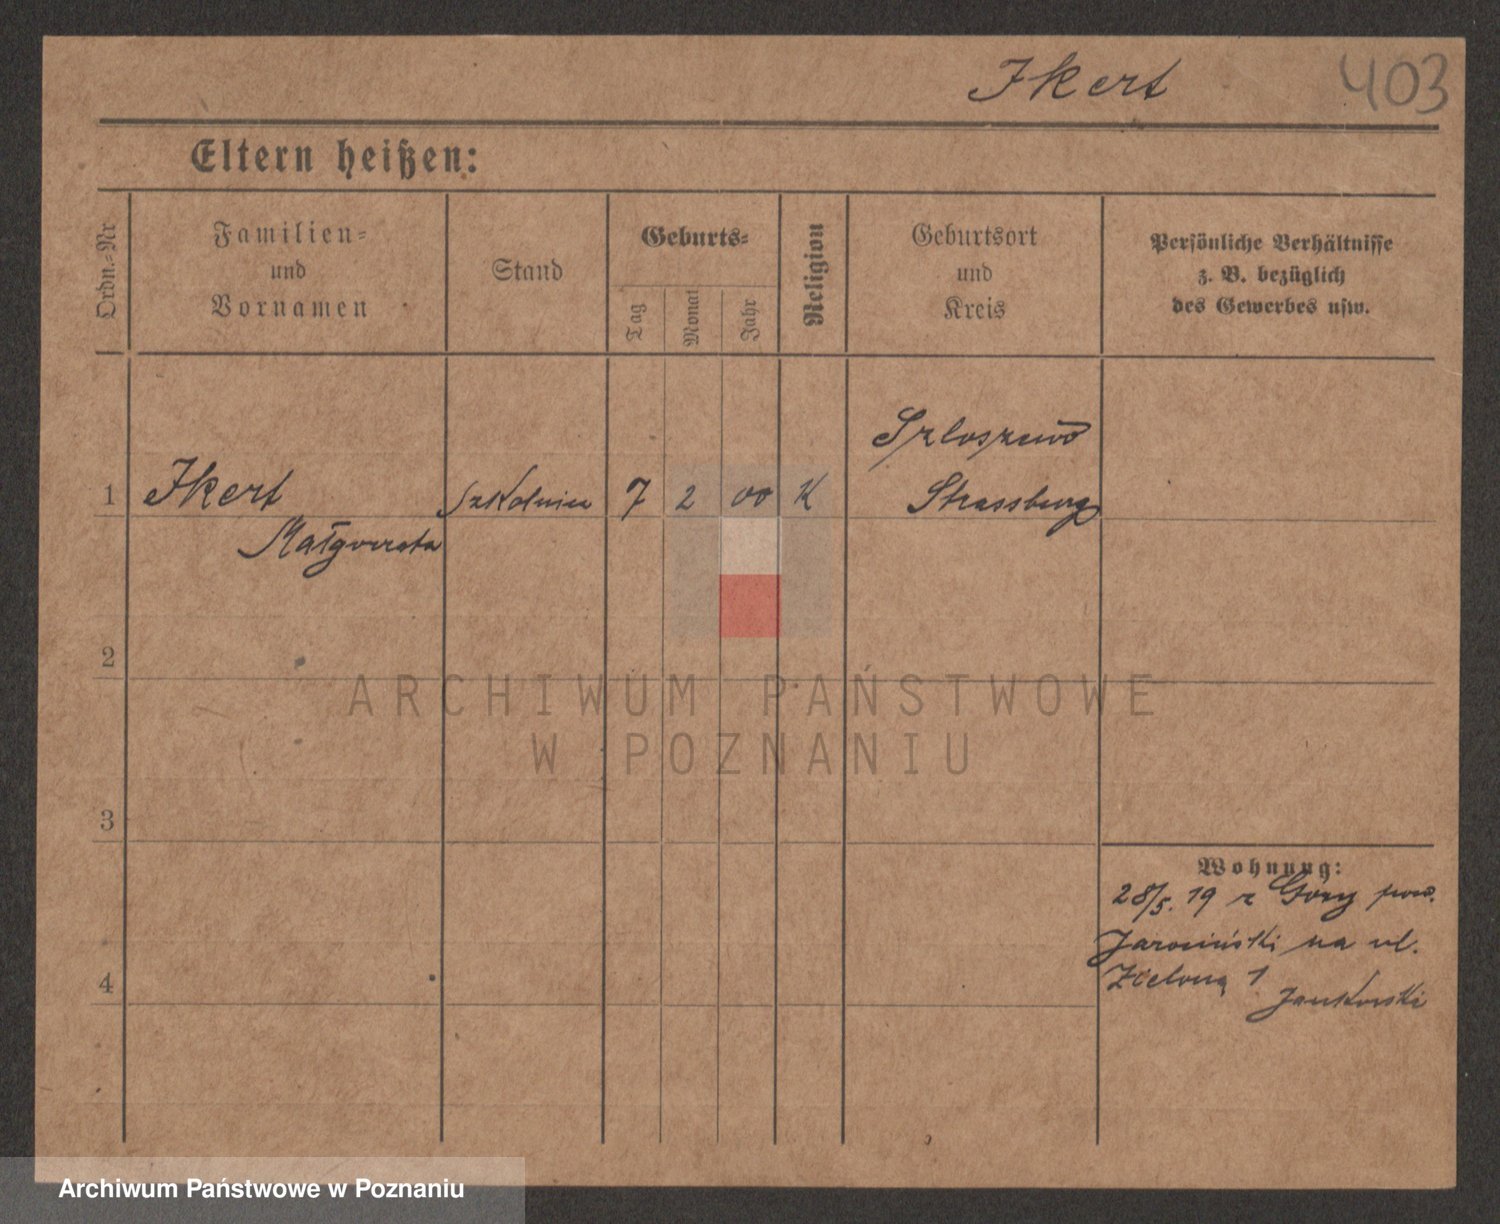 Ikert 403
Eltern heißen:
Ordn.-Nr
Familien-
und
Vornamen
Stand
Geburts-
Tag
Monat
Jahr
Religion
Geburtsort
und
Kreis
Persönliche Verhältnisse
z. B. bezüglich
des Gewerbes usw.
1 Ikert
Małgorzata
7 2 00 K
Strassburg
2
3
4
Wohnung:
28/5. 19 z Góry pow.
Jarociński na ul.
Zieloną 1
Jankowski
ARCHIWUM PAŃSTWOWE
W POZNANIU
Archiwum Państwowe w Poznaniu